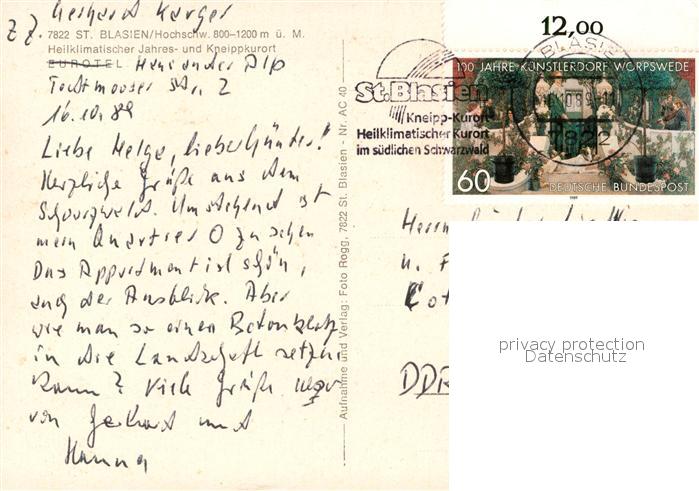 Gerhard Karger
z. Z.
7822 ST. BLASIEN/Hochschw. 800–1200 m ü. M.
Heilklimatischer Jahres- und Kneippkurort
EUROTEL Haus an der Alp
Todtmooser Str. 2
16.10.89
Liebe Helga, lieber Günter!
Herzliche Grüße aus dem
Schwarzwald. Umstehend ist
mein Quartier O zu sehen
Das Appartment ist schön,
auch der Ausblick. Aber
wie man so einen Betonklotz
in die Landschaft setzen
kann? Viele Grüße
von Gerhard und
Hanna
Aufnahme und Verlag: Foto Rogg, 7822 St. Blasien - Nr. AC 40
12,00
BLASIEN
7822
St. Blasien
Kneipp-Kurort
Heilklimatischer Kurort
im südlichen Schwarzwald
100 JAHRE KÜNSTLERDORF WORPSWEDE
60
DEUTSCHE BUNDESPOST
1989
Herrn
u. F
Cot
DDR
privacy protection
Datenschutz